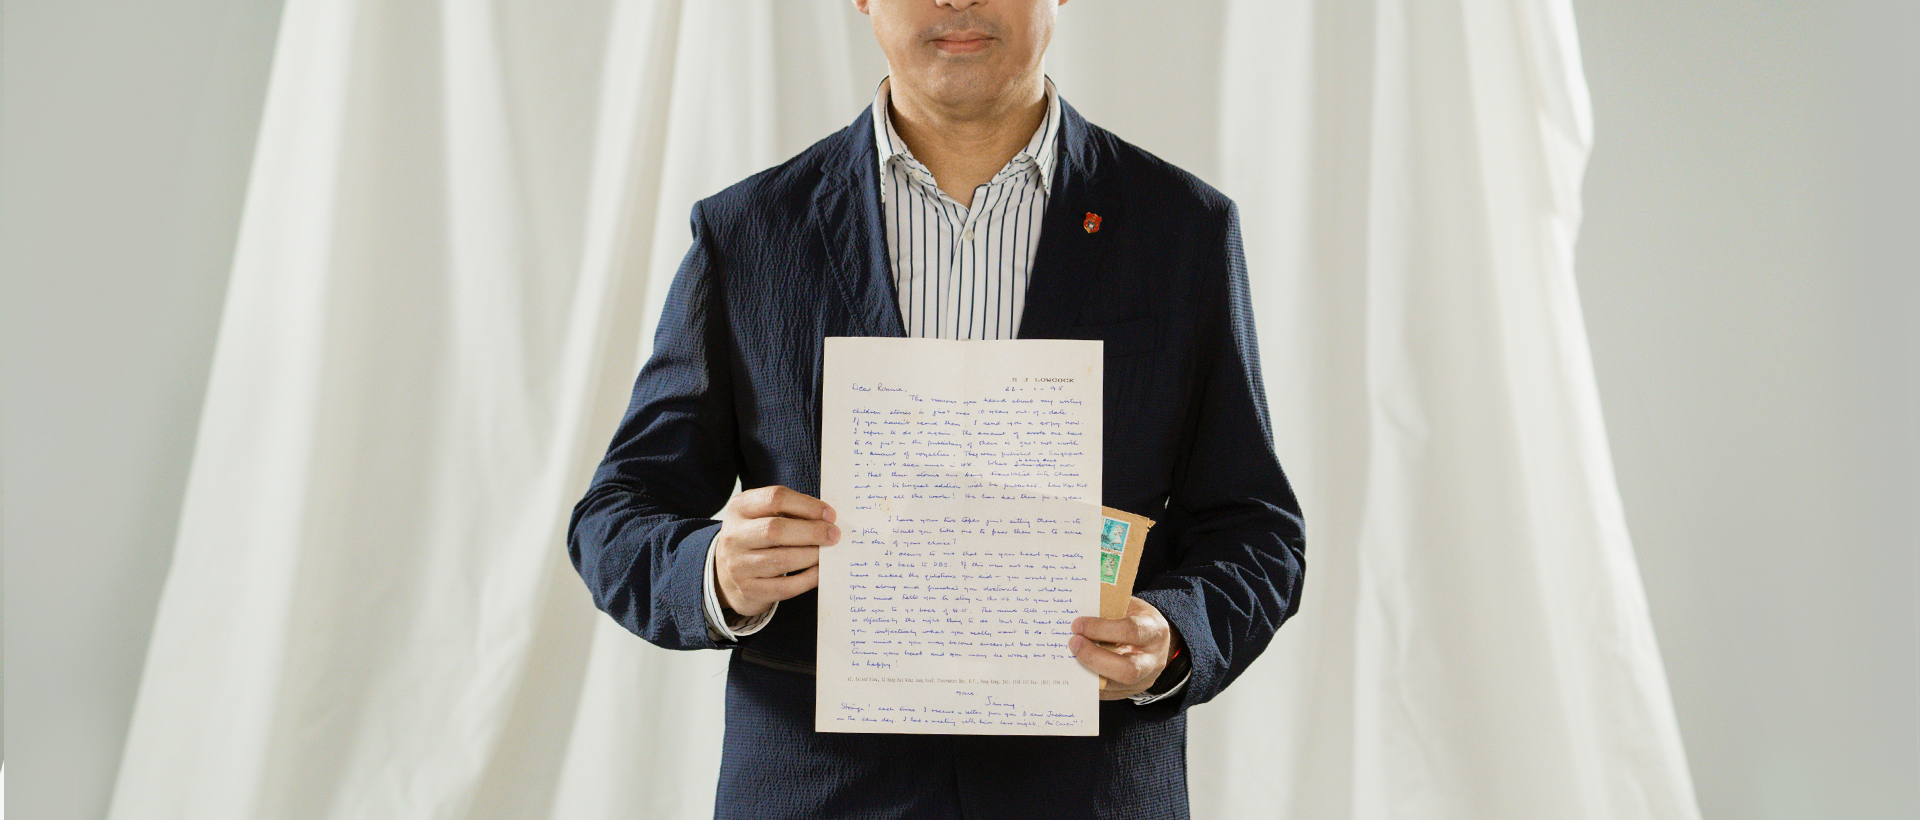 S J LOWCOCK
Dear Ronnie,
22 - 1 - 95
The rumours you heard about my writing
children stories is just over 10 years out-of-date.
If you haven't read them I send you a copy now.
I refuse to do it again. The amount of work one have
to do just in the publishing of them is just not worth
the amount of royalties. They were published in Singapore
not seen much in HK. What is being done now
is that these stories are being translated into Chinese
and a bilingual edition will be produced.
is doing all the work! He has had them for a year
now!!
I have your two tapes just sitting there
a pity. Would you like me to pass them on to some
one else of your choice?
It occurs to me that in your heart you really
want to go back to DBS. If this was not so you won't
have asked the questions you did - you would just have
gone along and finished your doctorate or whatever.
Your mind tells you to stay in the US but your heart
tells you to go back to H.K. The mind tells you what
is objectively the right thing to do but the heart tells
you subjectively what you really want to do.
your mind & you may become successful but unhappy
your heart and you may be wrong but you
be happy!
Yours,
Jimmy
Strange! each time I receive a letter from you I see
on the same day. I had a meeting with him last night.